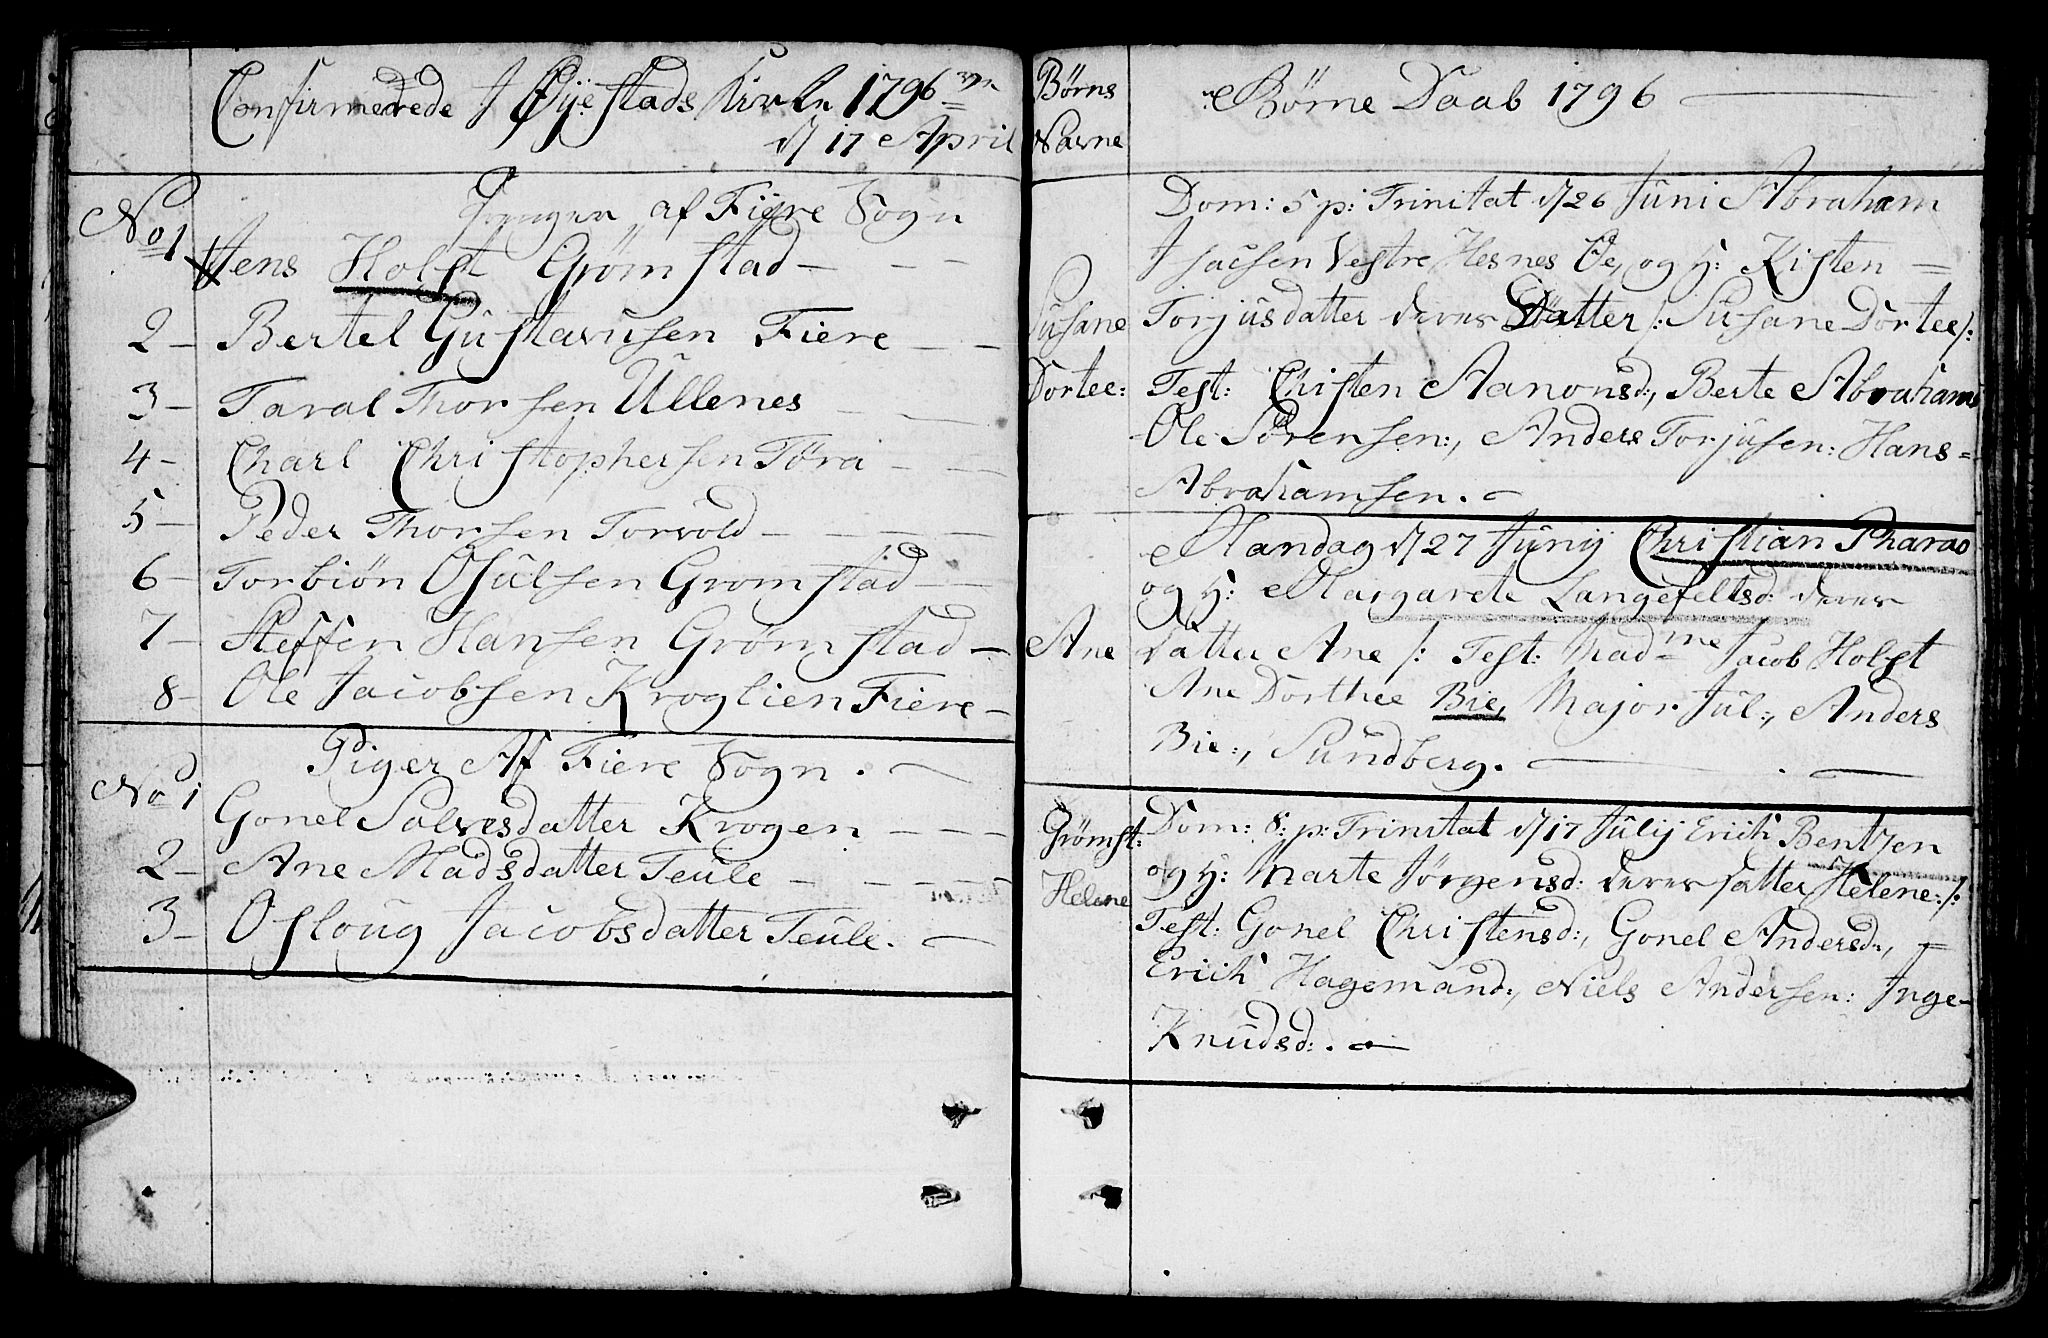 Confirmerede I Øÿestads Kirke 1796
d/ 17 April
af Fiære Sogn
No 1 Jens Holst Grømstad — — —
2 — Bertel Gustavusen Fiere — —
3 — Taral Thorsen Ullenes — —
4 — Charl Christophersen Töra — —
5 — Peder Thorsen Torvold — — — —
6 — Torbiön Osulsen Gromstad — —
7 — Steffen Hansen Grømstad —
8 — Ole Jacobsen Kroglien Fiere —
Piger Af Fiere Sogn . —
No 1 Gonel Salvesdatter Krogen — — —
2 — Ane Madsdatter Teule — — — —
3 — Osloug Jacobsdatter Teule. —
Børns
Navne
Børne Daab 1796 —
Dom: 5 p: Trinitat d/ 26 Juni Abraham
Isacsen Vestre Hesnes Øe, og H: Kisten =
Susane Torjusdatter deres Datter /: Susane Dortee /:
Dortee: Test: Christen Aanonsd:, Berte Abrahams
Ole Sörensen:, Anders Torjusen: Hans =
Abrahamsen. —
Mandag d/ 27 Junij Christian Pharao
og H: Margarete Langefeltsd: deres
Ane Datter Ane /: Test: Madme Jacob Holst
Ane Dorthee Bie, Major Jul:, Anders
Bie:, Sundberg. — . —
Grømst: Dom: 8: p: Trinitat d/ 17 Julij Erich Bentzen
og H: Marte Jörgensd: deres Datter Helene: /:
Helene Test: Gonel Christensd:, Gonel Andersd:, =
Erich Hagemand:, Niels Andersen: Inge-
Knudsd: . —